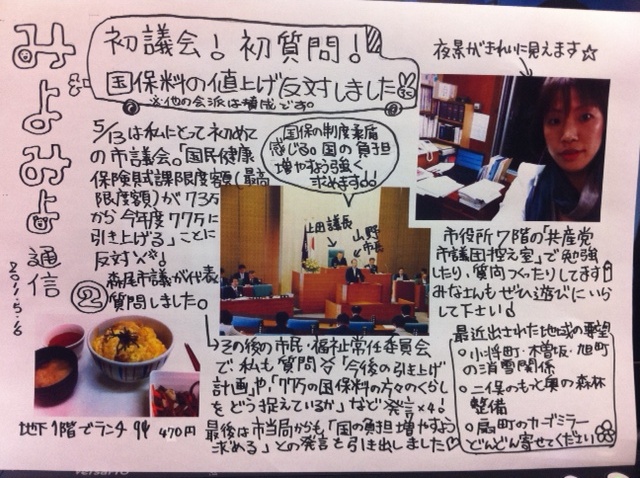 みよみよ通信
2011.5.16
②
初議会!初質問!
国保料の値上げ反対しました
※他の会派は賛成です。
5/13は私にとって初めて
の市議会。「国民健康
保険賦課限度額(最高
限度額)が73万
から今年度77万に
引き上げる」ことに
反対
森尾市議が代表
質問しました。
国保の制度疲労
感じる。国の負担
増やすよう強く
求めます!!
上田議長
山野市長
→その後の市民・福祉常任委員会
で私も質問 「今後の引き上げ
計画」や「77万の国保料の方々のくらし
をどう捉えているか」など発言
最後は市当局からも「国の負担増やすよう
求める」との発言を引き出しました♡
地下1階でランチ
470円
夜景がきれいに見えます☆
市役所7階の「共産党
市議団控え室」で勉強
したり、質問つくったりしてます!
みなさんもぜひ遊びにいら
して下さい
最近出された地域の要望
○小将町・欅坂・旭町
の消雪関係
○二俣のもっと奥の森林
整備
○扇町のカーブミラー
どんどん寄せてください